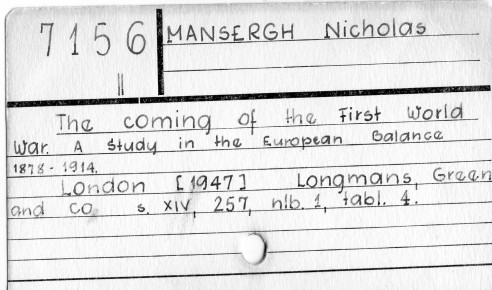 7156 MANSERGH Nicholas
II
The coming of the First World
War. A study in the European Balance
1878-1914.
London [1947] Longmans, Green
and Co. s. XIV, 257, nlb. 1, tabl. 4.